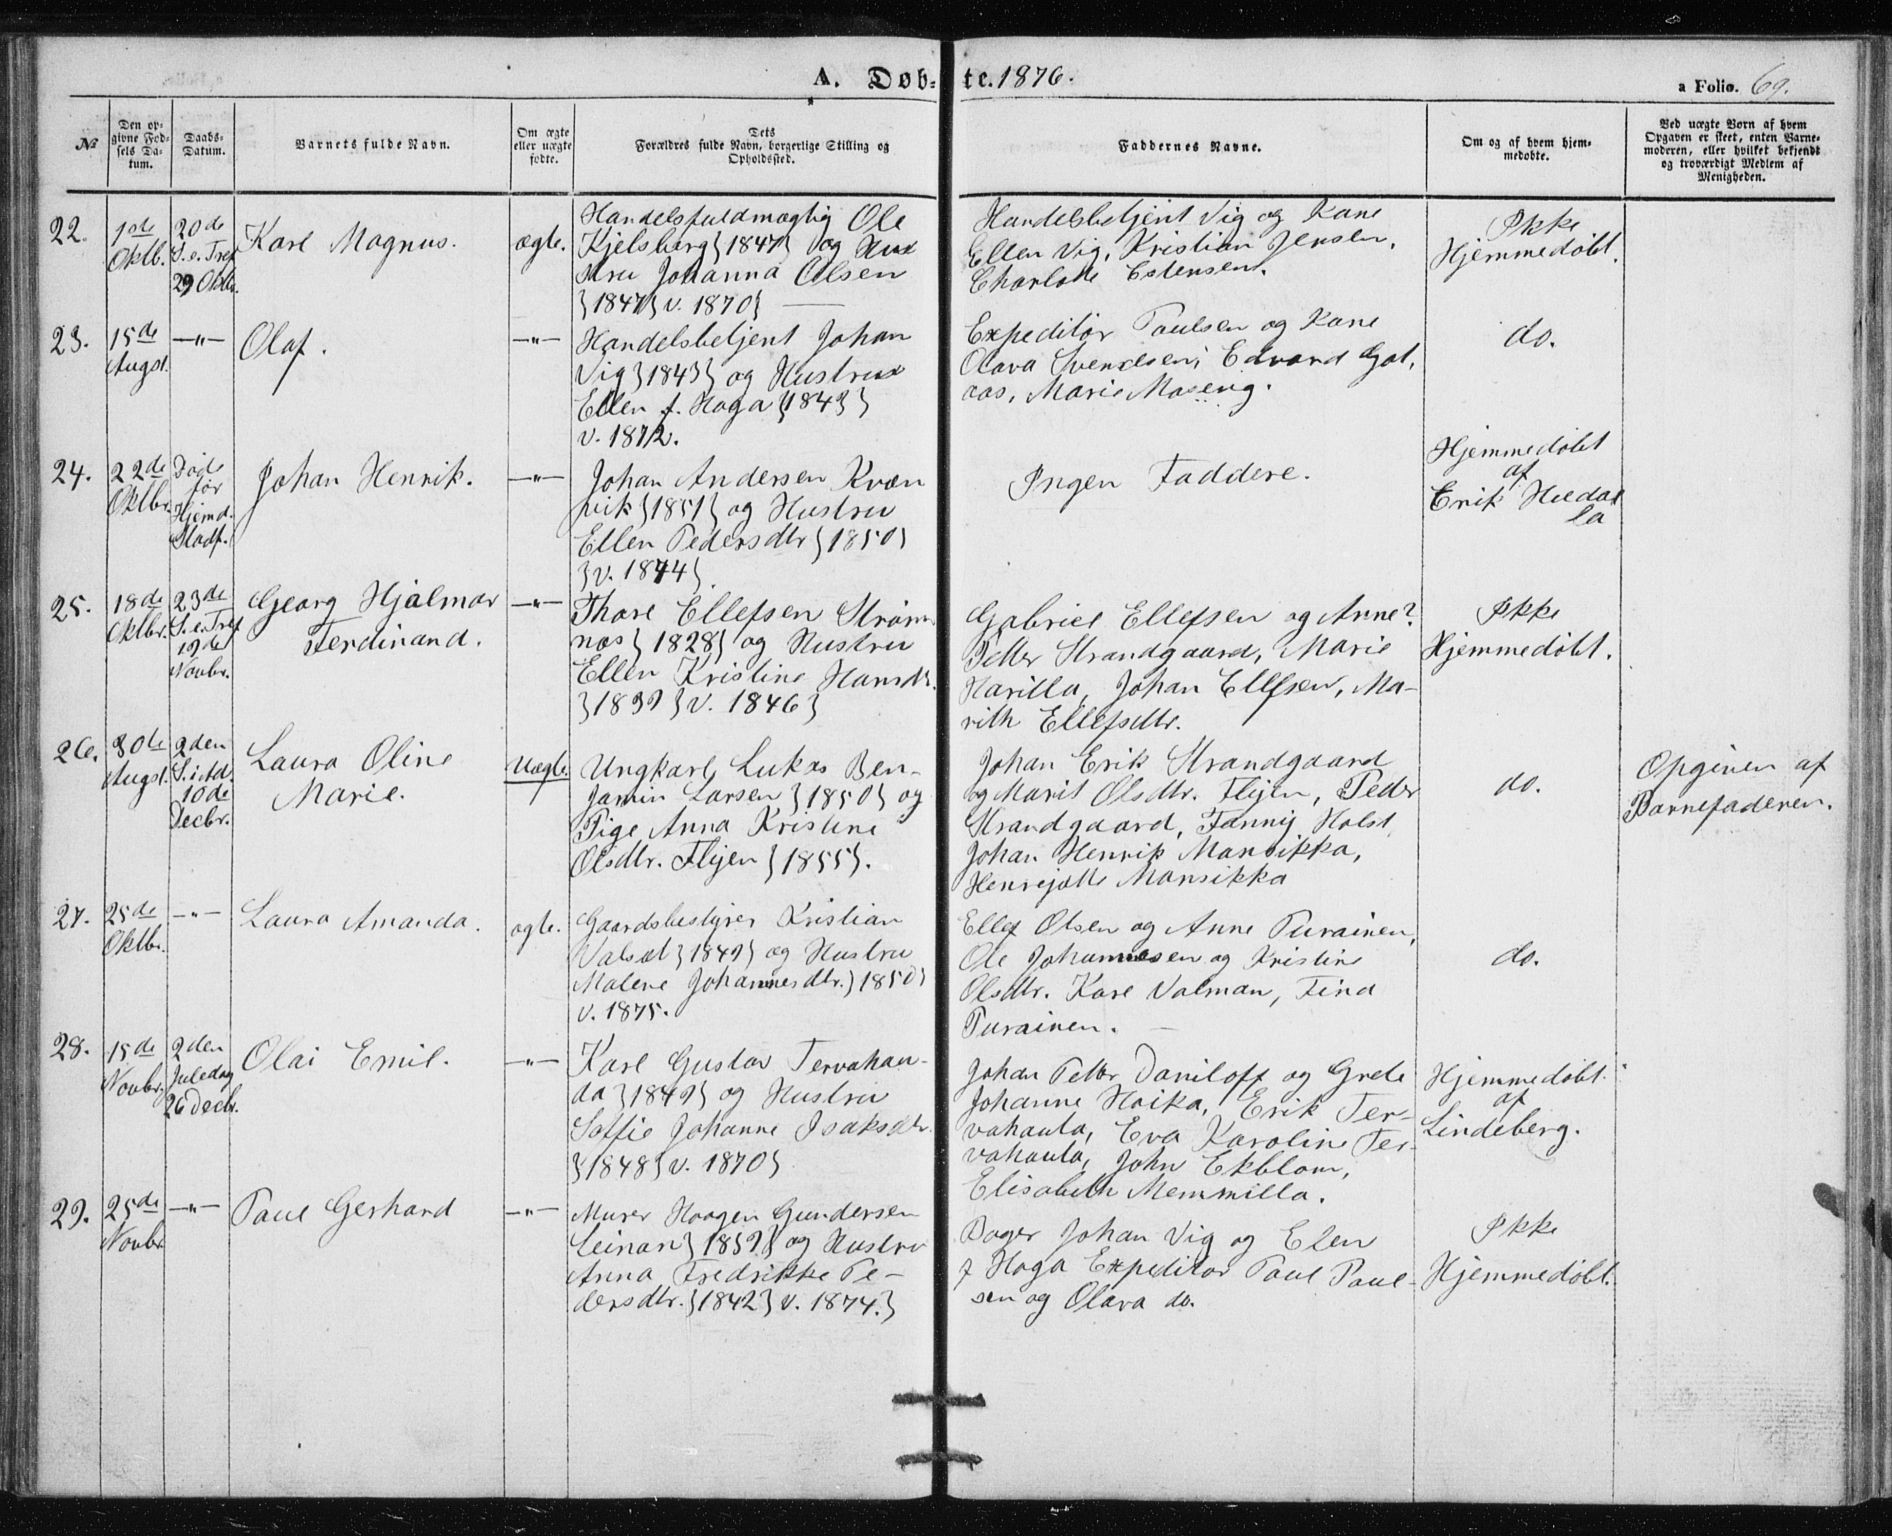 A. Døb-te. 1876.
a Folio. 69.
№
Den op-
givne Fød-
sels Da-
tum.
Daabs-
Datum.
Barnets fulde Navn.
Om ægte
eller uægte
fødte.
Dets
Forældres fulde Navn, borgerlige Stilling og
Opholdssted.
Faddernes Navne.
Om og af hvem hjem-
medøbte.
Ved uægte Børn af hvem
Opgaven er skeet, enten Barne-
moderen, eller hvilket bekjendt
og troværdigt Medlem af
Menigheden.
22.
1ste
Oktb.
20de
S. e. Tref
29 Oktbr.
Karl Magnus.
ægte.
Handelsfuldmægtig Ole
Kjelsberg } 1847} og Hus
stru Johanna Olsen
}1847} v. 1870}
Handelsbetjent Vig og Kone
Ellen Vig, Kristian Jensen,
Charlotte Estensen.
Ikke
Hjemmedøbt.
23.
15de
Augst.
—"—
Olaf.
—"—
Handelsbetjent Johan
Vig}1843} og Hustru
Ellen f. Haga}1843}
v. 1872.
Expeditør Paulsen og Kone
Olava Svendsen, Edvard Gal,
aas, Marie Moseng.
do.
24.
22de
Oktbr.
Døde
før
Hjemd.
Stadf.
Johan Henrik.
—"—
Johan Andersen Kvæn
vik}1851} og Hustru
Ellen Pedersdtr}1850}
}v. 1874}
Ingen Faddere.
Hjemmedøbt
af
Erik Hiedal
la
25.
18de
Oktbr.
23de
S. e. Tref
19de
Novbr.
Georg Hjalmar
Ferdinand.
—"—
Thore Ellefsen Strøm
næs} 1828} og Hustru
Ellen Kristine Hansdtr.
}1839}v. 1846}
Gabriel Ellefsen og Anne?
Petter Strandgaard, Marie
Harilla, Johan Ellefsen, Ma-
rith Ellefsdtr.
Ikke
Hjemmedøbt.
26.
30te
Augst.
2den
S. i Ad.
10de
Decbr.
Laura Oline
Marie.
Uægte.
Ungkarl Lukas Ben-
jamin Larsen}1850} og
Pige Anna Kristine
Olsdtr. Flyen}1855}.
Johan Erik Strandgaard
og Marit Olsdtr. Flyen, Peder
Strandgaard, Fanny Holst
Johan Henrik Mansikka,
Henrejatte Mansikka
do.
Opgiven af
Barnefaderen.
27.
25de
Oktbr.
—"—
Laura Amanda.
ægte.
Gaardsbestyrer Kristian
Valsæt}1849} og Hustru
Malene Johannesdtr.}1850}
v. 1875.
Ellef Olsen og Anne Purainen,
Ole Johannesen og Kristine
Olsdtr. Karl Valman, Fina
Purainen.
do.
28.
15de
Novbr.
2den
Juledag
26 Decbr.
Olai Emil.
—"—
Karl Gustav Tervahau-
ta}1849} og Hustru
Soffie Johanne Isaksdtr.
}1848}v. 1870}
Johan Petter Daniloff og Grete
Johanne Hoika, Erik Ter-
vahauta, Eva Karoline Ter-
vahauta, John Ekblom,
Elisabeth Memmilla.
Hjemmedøbt.
af
Lindeberg.
29.
25de
Novbr
—"—
Paul Gerhard
—"—
Murer Haagen Gundersen
Leinan}1852} og Hustru
Anna Fredrikke Pe-
dersdtr.}1842}v. 1874.}
Bager Johan Vig og Elen
f Haga Expeditør Paul Paul-
sen og Olava do.
Ikke
Hjemmedøbt.